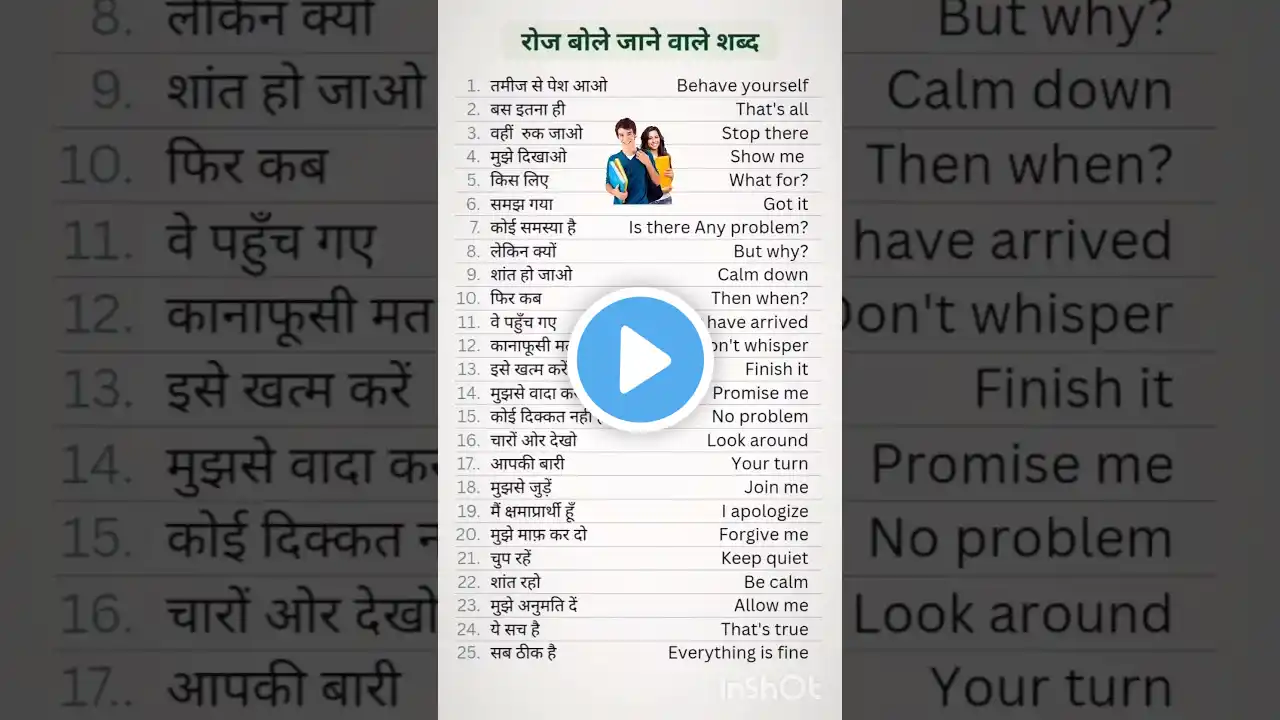 रोज बोले जाने वाले शब्द
1. तमीज से पेश आओ Behave yourself
2. बस इतना ही That's all
3. वहीं रुक जाओ Stop there
4. मुझे दिखाओ Show me
5. किस लिए What for?
6. समझ गया Got it
7. कोई समस्या है Is there Any problem?
8. लेकिन क्यों But why?
9. शांत हो जाओ Calm down
10. फिर कब Then when?
11. वे पहुँच गए have arrived
12. कानाफूसी मत Don't whisper
13. इसे खत्म करें Finish it
14. मुझसे वादा Promise me
15. कोई दिक्कत नही No problem
16. चारों ओर देखो Look around
17.. आपकी बारी Your turn
18. मुझसे जुड़ें Join me
19. मैं क्षमाप्रार्थी हूँ I apologize
20. मुझे माफ़ कर दो Forgive me
21. चुप रहें Keep quiet
22. शांत रहो Be calm
23. मुझे अनुमति दें Allow me
24. ये सच है That's true
25. सब ठीक है Everything is fine
InShOt
8. लेकिन क्यों But why?
9. शांत हो जाओ Calm down
10. फिर कब Then when?
11. वे पहुँच गए have arrived
12. कानाफूसी मत Don't whisper
13. इसे खत्म करें Finish it
14. मुझसे वादा Promise me
15. कोई दिक्कत No problem
16. चारों ओर देखो Look around
17.. आपकी बारी Your turn